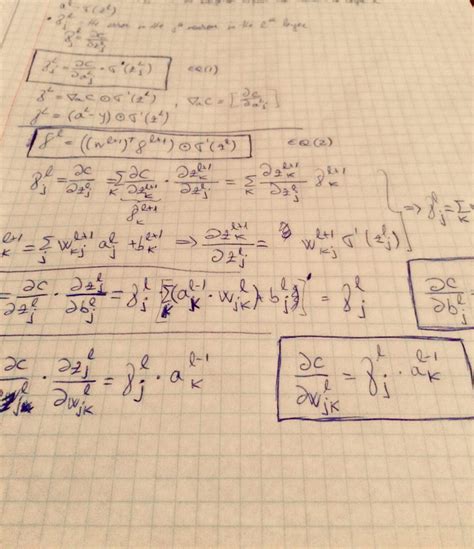 a^l = σ(z^l)
• γ_j^l the error in the j^th neuron in the l^th layer
γ_j^l = ∂C/∂z_j^l
γ_j^L = ∂C/∂a_j^L · σ'(z_j^L) EQ(1)
γ^L = ∇_a C ⊙ σ'(z^L) , ∇_a C = [∂C/∂a_j^L]
γ^L = (a^L - y) ⊙ σ'(z^L)
γ^l = ((w^{l+1})^T γ^{l+1}) ⊙ σ'(z^l) EQ(2)
γ_j^l = ∂C/∂z_j^l = Σ_k ∂C/∂z_k^{l+1} · ∂z_k^{l+1}/∂z_j^l = Σ_k ∂z_k^{l+1}/∂z_j^l γ_k^{l+1}
γ_k^{l+1}
⇒ γ_j^l = Σ_k
z_k^{l+1} = Σ_j w_{kj}^{l+1} a_j^l + b_k^{l+1} ⇒ ∂z_k^{l+1}/∂z_j^l = w_{kj}^{l+1} σ'(z_j^l)
= ∂C/∂z_j^l · ∂z_j^l/∂b_j^l = γ_j^l [Σ_k (a_k^{l-1} · w_{jk}^l) + b_j^l]' = γ_j^l
∂C/∂b_j^l =
∂C/∂z_j^l · ∂z_j^l/∂w_{jk}^l = γ_j^l · a_k^{l-1}
∂C/∂w_{jk}^l = γ_j^l · a_k^{l-1}